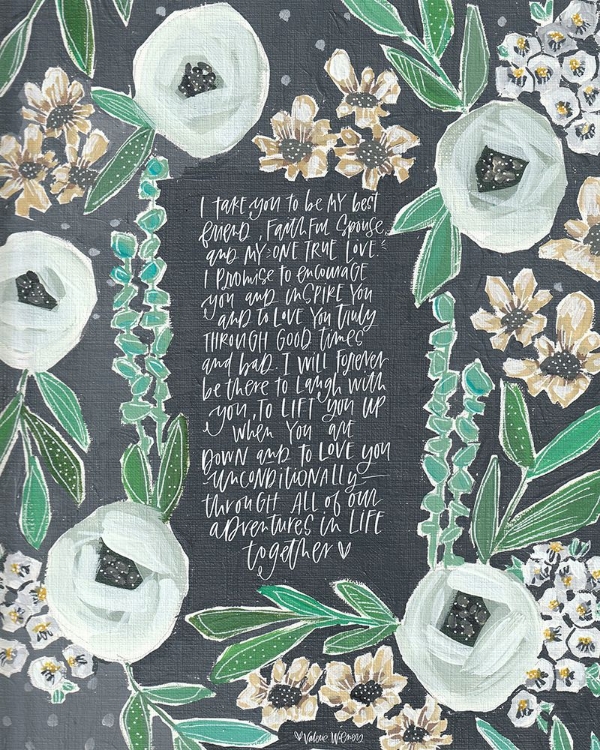 I take you to be MY best
friend, Faithful Spouse,
and MY ONE TRUE LOVE.
I Promise to encourage
you and inspire You
and to Love You truly
Through Good times
and bad. I will Forever
be there to Laugh with
you, To LIFT you UP
when You are
Down and to Love you
unconditionally
through ALL of our
adventures in LIFE
together ♥
♥ Valerie